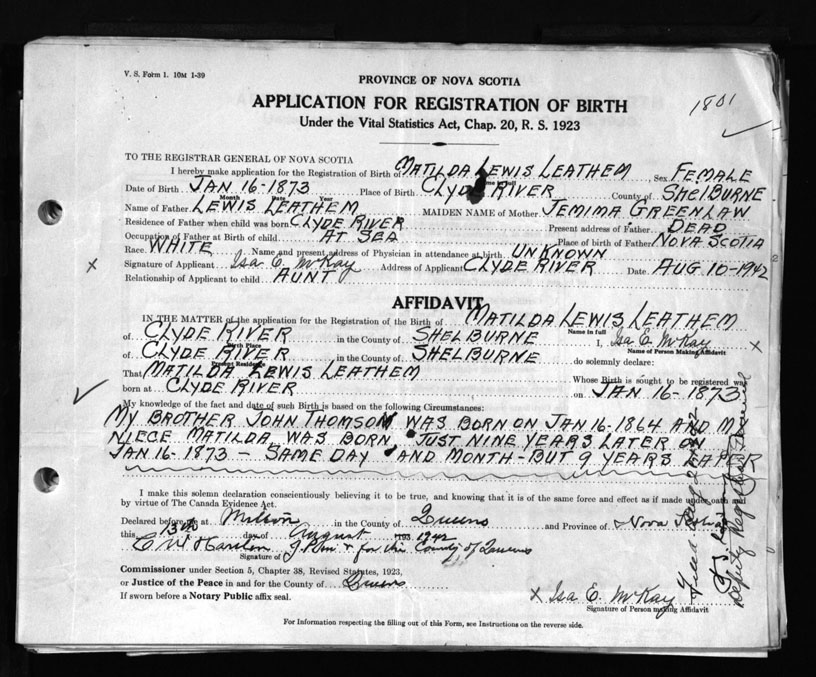 V. S. Form 1. 10M 1-39
PROVINCE OF NOVA SCOTIA
APPLICATION FOR REGISTRATION OF BIRTH
1801
Under the Vital Statistics Act, Chap. 20, R. S. 1923
TO THE REGISTRAR GENERAL OF NOVA SCOTIA
I hereby make application for the Registration of Birth of MATILDA LEWIS LEATHEM, Sex FEMALE
Name in full
Date of Birth JAN 16-1873 Place of Birth CLYDE RIVER County of SHELBURNE
Month Date Year
Name of Father LEWIS LEATHEM MAIDEN NAME of Mother JEMIMA GREENLAW
Residence of Father when child was born CLYDE RIVER Present address of Father DEAD
Occupation of Father at Birth of child AT SEA Place of birth of Father NOVA SCOTIA
Race WHITE Name and present address of Physician in attendance at birth UNKNOWN
X Signature of Applicant Isa E. McKay Address of Applicant CLYDE RIVER Date AUG 10-1942
Relationship of Applicant to child AUNT
AFFIDAVIT
IN THE MATTER of the application for the Registration of the Birth of MATILDA LEWIS LEATHEM
Name in full
of CLYDE RIVER in the County of SHELBURNE I, Isa E. McKay X
Birth Place Name of Person Making Affidavit
of CLYDE RIVER in the County of SHELBURNE do solemnly declare:
Present Residence
That MATILDA LEWIS LEATHEM Whose Birth is sought to be registered was
born at CLYDE RIVER on JAN 16-1873
My knowledge of the fact and date of such Birth is based on the following Circumstances:
MY BROTHER JOHN THOMSON WAS BORN ON JAN 16-1864 AND M
NIECE MATILDA WAS BORN JUST NINE YEARS LATER ON
JAN 16-1873 - SAME DAY AND MONTH - BUT 9 YEARS LATER
I make this solemn declaration conscientiously believing it to be true, and knowing that it is of the same force and effect as if made under oath and
by virtue of The Canada Evidence Act.
Declared before me at Milton in the County of Queens and Province of Nova Scotia
this 13th day of August 1942
J.P. in & for the County of Queens
Signature of
Commissioner under Section 5, Chapter 38, Revised Statutes, 1923,
or Justice of the Peace in and for the County of Queens
If sworn before a Notary Public affix seal.
X Isa E. McKay
Signature of Person making Affidavit
For Information respecting the filling out of this Form, see Instructions on the reverse side.
Filed Aug
Deputy Registrar General